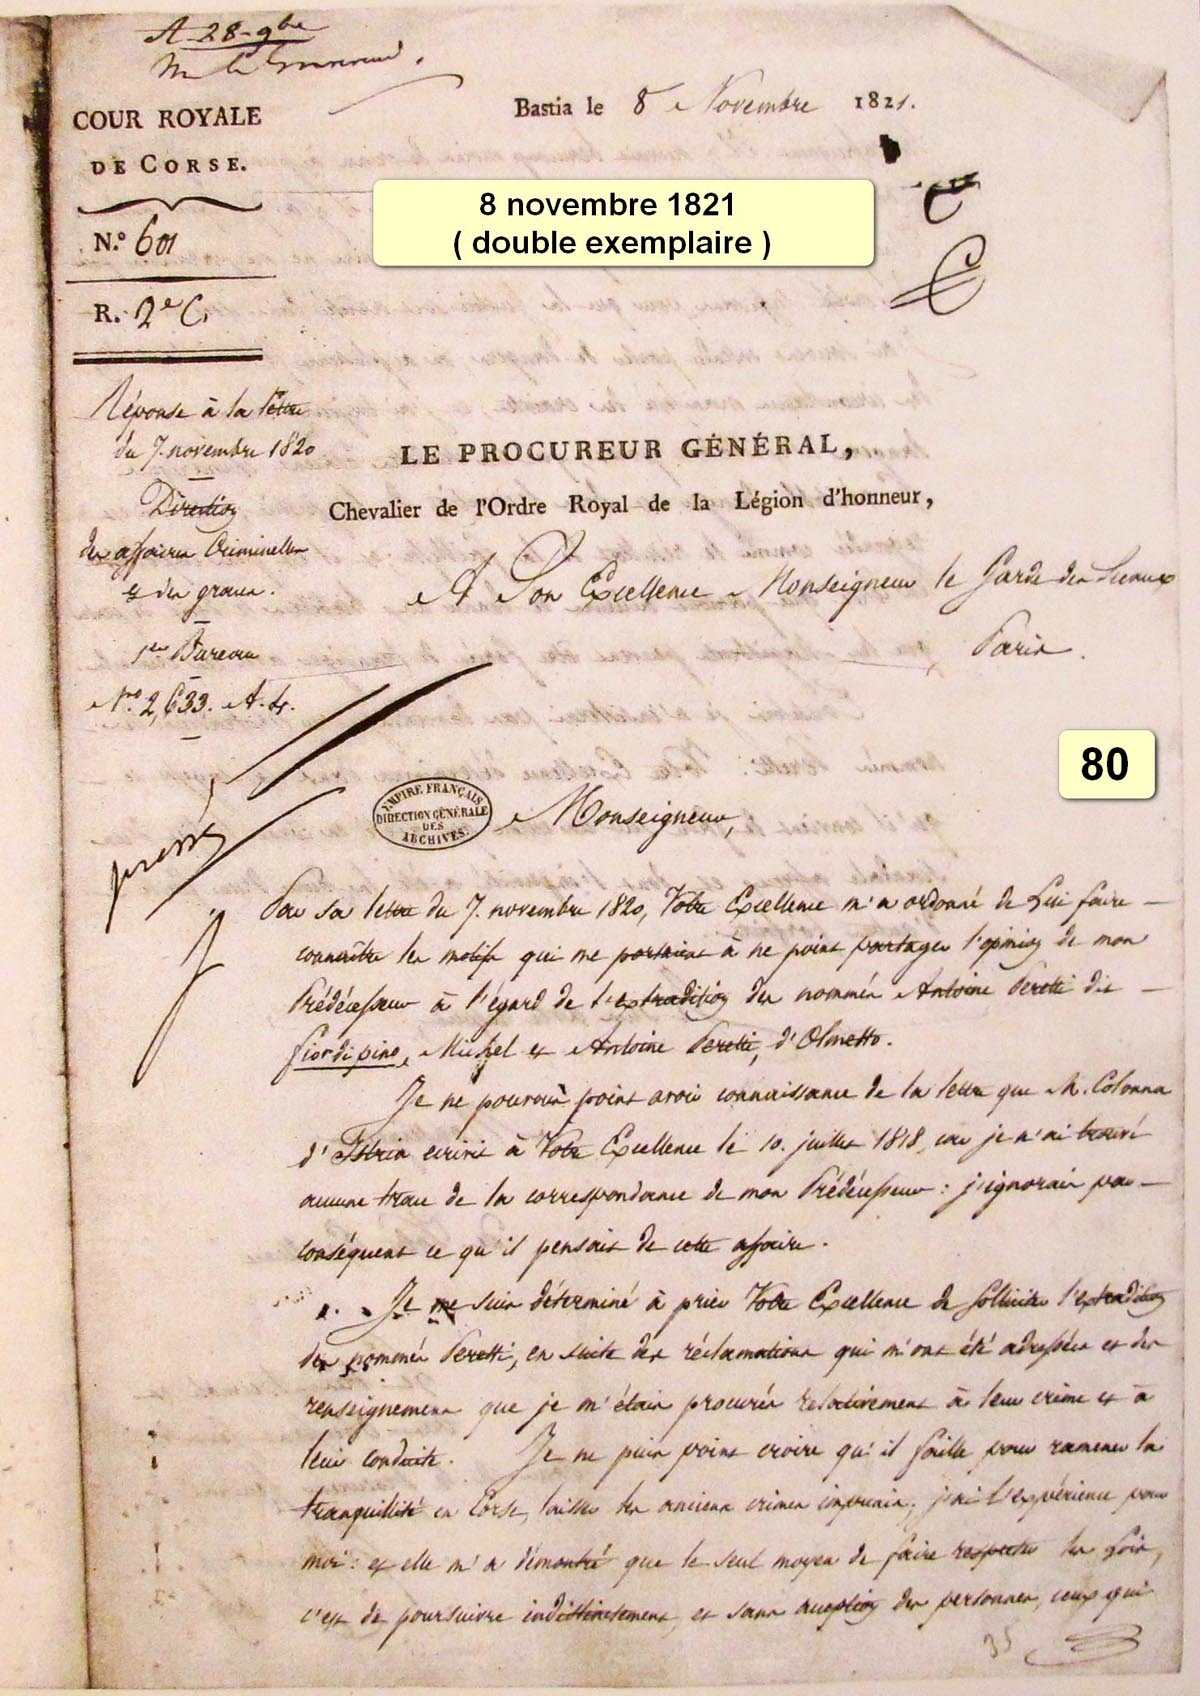 A 28 9bre
COUR ROYALE
DE CORSE.
N.º 601
R. 2e C.
Bastia le 8 Novembre 1821.
8 novembre 1821
( double exemplaire )
Réponse à la lettre
du 7. novembre 1820
Direction
des affaires Criminelles
& des graces.
1er Bureau
Nro 2,633. A. 4.
LE PROCUREUR GÉNÉRAL,
Chevalier de l'Ordre Royal de la Légion d'honneur,
A Son Excellence Monseigneur le Garde des Sceaux
Paris.
80
pressé
EMPIRE FRANÇAIS
DIRECTION GÉNÉRALE
DES
ARCHIVES.
Monseigneur,
Par sa lettre du 7. novembre 1820, Votre Excellence m'a ordonné de Lui faire
connaître les motifs qui me portaient à ne point partager l'opinion de mon
Prédécesseur à l'égard de l'extradition des nommés Antoine Peretti dit
fior di pino, Michel et Antoine Peretti, d'Olmetto.
Je ne pouvais point avoir connaissance de la lettre que M. Colonna
d'Istria écrivit à Votre Excellence le 10. juillet 1818, car je n'ai trouvé
aucune trace de la correspondance de mon Prédécesseur : j'ignorais par
conséquent ce qu'il pensait de cette affaire.
Je me suis déterminé à prier Votre Excellence de solliciter l'extradition
des nommés Peretti, en suite des réclamations qui m'ont été adressées et des
renseignemens que je m'étais procurés relativement à leur crime et à
leur conduite. Je ne puis point croire qu'il faille pour ramener la
tranquillité en Corse, laisser les anciens crimes impunis; j'ai l'expérience pour
moi : et elle m'a démontré que le seul moyen de faire respecter les Lois,
c'est de poursuivre indistinctement, et sans acception des personnes, ceux qui
35